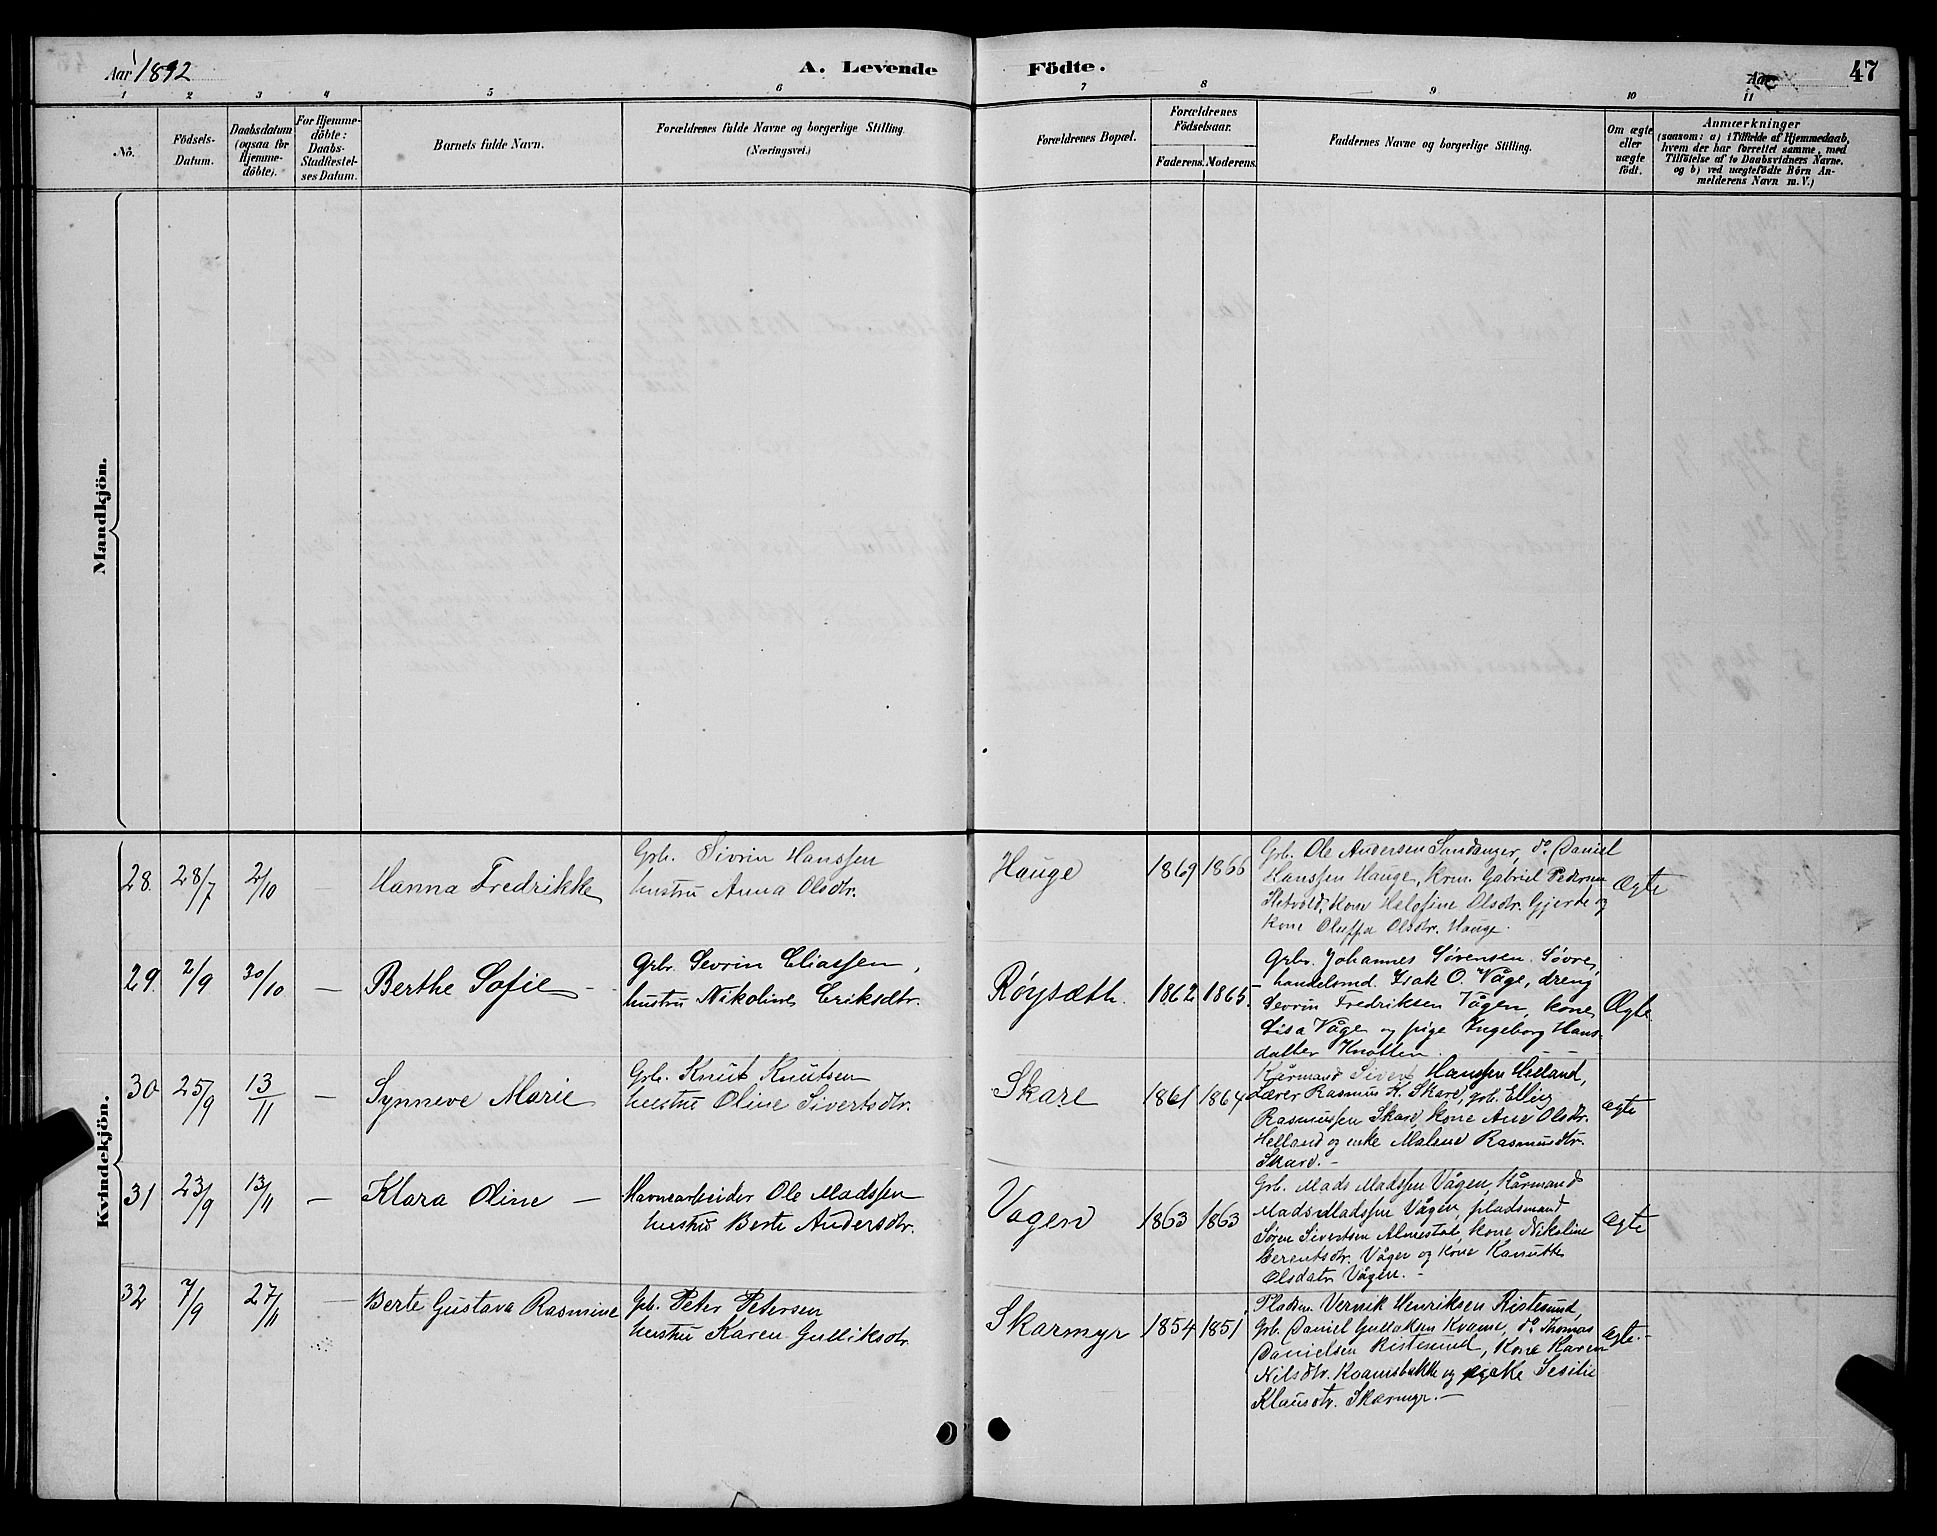 Aar 1892
A. Levende Födte.
Aar
47
1 2 3 4 5 6 7 8 9 10 11
No.
Födsels-
Datum.
Daabsdatum
(ogsaa for
Hjemme-
döbte).
For Hjemme-
döbte:
Daabs-
Stadfæstel-
ses Datum.
Barnets fulde Navn.
Forældrenes fulde Navne og borgerlige Stilling.
(Næringsvei.)
Forældrenes Bopæl.
Forældrenes
Födselsaar.
Faderens. Moderens.
Faddernes Navne og borgerlige Stilling.
Om ægte
eller
uægte
födt.
Anmærkninger
(saasom: a) i Tilfælde af Hjemmedaab,
hvem der har forrettet samme, med
Tilföielse af to Daabsvidners Navne.
og b) ved uægtefödte Børn An-
melderens Navn m. V.)
Mandkjön.
Kvindekjön.
28. 28/7 2/10 Hanna Fredrikke
Grb. Sivrin Hanssen
hustru Anna Olsdtr.
Hauge 1869 1866
Grb. Ole Andersen Sundanger, do Daniel
Hanssen Hauge, krm. Gabriel Pedersen
kone Olsdtr. Gjerde og
kone Olsdtr. Hauge.
Ægte
29. 2/9 30/10 — Berthe Sofie
Grbr. Sevrin Eliassen,
hustru Nikoline Eriksdtr.
Røysæth. 1862 1865.
Grbr. Johannes Sørensen Søvre,
handelsmd. Isak O. Våge, dreng
Sevrin Fredriksen Vågen, kone
Lisa Våge og pige Ingeborg Hans-
datter Knotten.
Ægte.
30 25/9 13/11 — Synneve Marie
Grb. Knut Knutsen
hustru Oline Sivertsdtr.
Skare 1861 1864
Kårmand Sivert Hanssen
Lærer Rasmus K. Skare, grb. Elling
Rasmussen Skare, kone Ane Olsdtr.
Helland og enke Malene Rasmusdtr.
Skare.—
ægte
31 23/9 13/11 — Klara Oline —
Havnearbeider Ole Madssen
hustru Berte Andersdtr.
Vagen 1863 1863
Grb. Mads Madssen Vågen, Kårmand
Mads Madssen Vågen, pladsmand
Søren Sivertsen Almestad, kone Nikoline
Berentsdtr. Vågen og kone
Olsdatr Vågen.—
ægte
32 7/9 27/11 — Berte Gustava Rasmine
Grb. Peter Petersen
hustru Karen Gulliksdtr
Skarmyr 1854 1851
Pladsm. Henriksen Ristesund,
Grb. Daniel Gullaksen Kvame, do Thomas
Danielsen Ristesund, kone Karen
Nilsdtr. Kvamsbakke og enke Sesilie
Klausdtr. Skarmyr.—
ægte.—